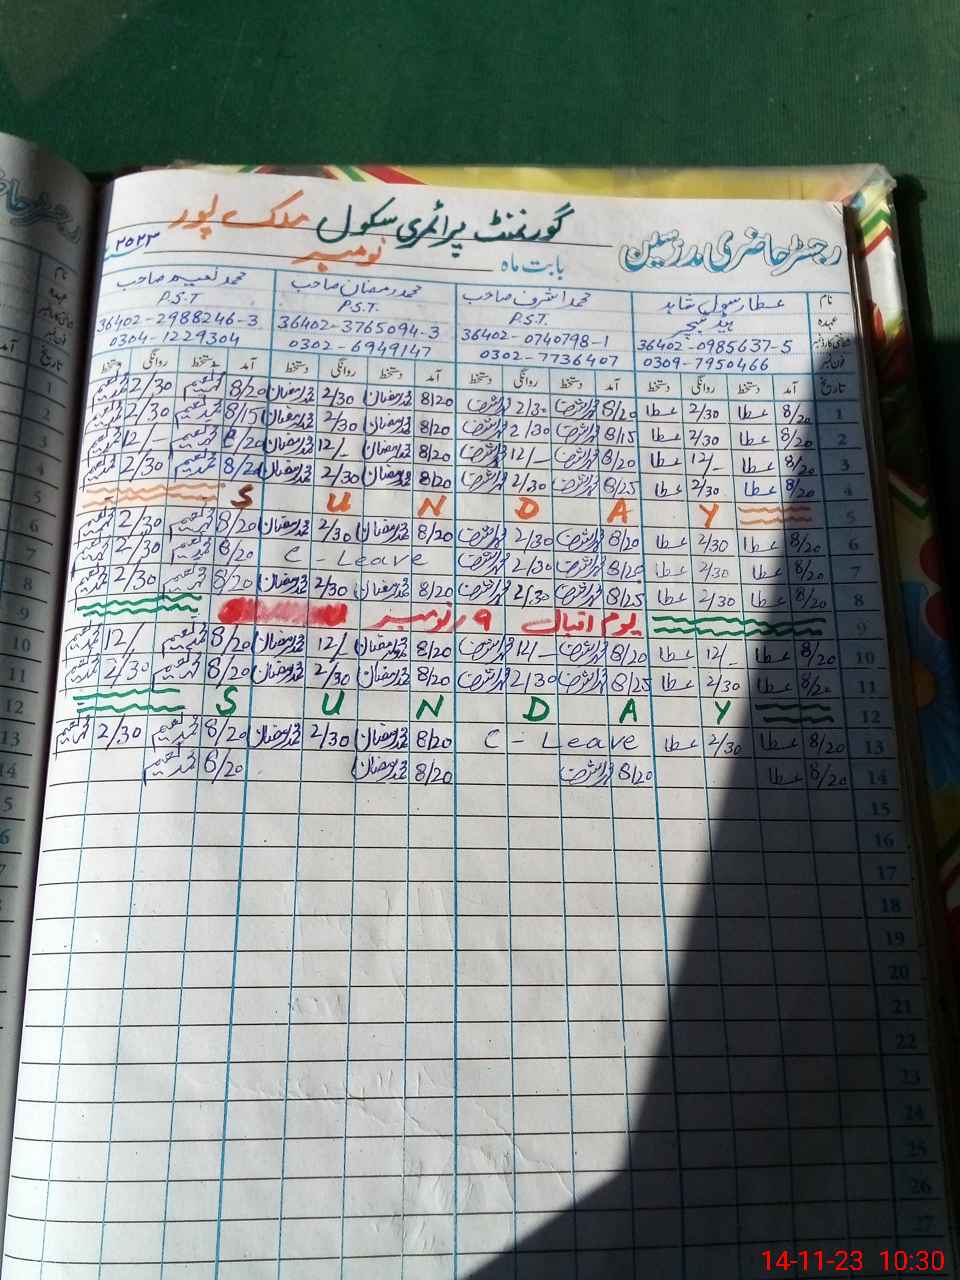 رجسٹر حاضری مدرسین گورنمنٹ پرائمری سکول ملک پور
بابت ماہ نومبر ۲۰۲۳
نام عطا رسول شاہد محمد اشرف صاحب محمد رمضان صاحب محمد نعیم صاحب
عہدہ ہیڈ ٹیچر P.S.T. P.S.T. P.S.T
36402-0985637-5 36402-0740798-1 36402-3765094-3 36402-2988246-3
0309-7950466 0302-7736407 0302-6949147 0304-1229304
تاریخ آمد دستخط روانگی دستخط آمد دستخط روانگی دستخط آمد دستخط روانگی دستخط آمد دستخط روانگی دستخط
1 8/20 عطا 2/30 عطا 8/20 محمد اشرف 2/30 محمد اشرف 8/20 محمد رمضان 2/30 محمد رمضان 8/20 محمد نعیم 2/30 محمد نعیم
2 8/20 عطا 2/30 عطا 8/15 محمد اشرف 2/30 محمد اشرف 8/20 محمد رمضان 2/30 محمد رمضان 8/15 محمد نعیم 2/30 محمد نعیم
3 8/20 عطا 12/- عطا 8/20 محمد اشرف 12/- محمد اشرف 8/20 محمد رمضان 12/- محمد رمضان 8/20 محمد نعیم 12/- محمد نعیم
4 8/20 عطا 2/30 عطا 8/25 محمد اشرف 2/30 محمد اشرف 8/20 محمد رمضان 2/30 محمد رمضان 8/20 محمد نعیم 2/30 محمد نعیم
5 S U N D A Y
6 8/20 عطا 2/30 عطا 8/20 محمد اشرف 2/30 محمد اشرف 8/20 محمد رمضان 2/30 محمد رمضان 8/20 محمد نعیم 2/30 محمد نعیم
7 8/20 عطا 2/30 عطا 8/20 محمد اشرف 2/30 محمد اشرف C - Leave 8/20 محمد نعیم 2/30 محمد نعیم
8 8/20 عطا 2/30 عطا 8/25 محمد اشرف 2/30 محمد اشرف 8/20 محمد رمضان 2/30 محمد رمضان 8/20 محمد نعیم 2/30 محمد نعیم
9 یوم اقبال ۹ نومبر
10 8/20 عطا 12/- عطا 8/20 محمد اشرف 12/- محمد اشرف 8/20 محمد رمضان 12/- محمد رمضان 8/20 محمد نعیم 12/ محمد نعیم
11 8/20 عطا 2/30 عطا 8/25 محمد اشرف 2/30 محمد اشرف 8/20 محمد رمضان 2/30 محمد رمضان 8/20 محمد نعیم 2/30 محمد نعیم
12 S U N D A Y
13 8/20 عطا 2/30 عطا C - Leave 8/20 محمد رمضان 2/30 محمد رمضان 8/20 محمد نعیم 2/30 محمد نعیم
14 8/20 عطا 8/20 محمد اشرف 8/20 محمد رمضان 8/20 محمد نعیم
15
16
17
18
19
20
21
22
23
24
25
26
27
14-11-23 10:30